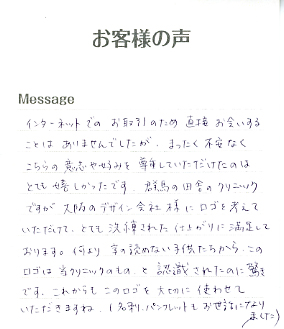 お客様の声
Message
インターネットでの お取引のため 直接 お会いする
ことは ありませんでしたが、まったく 不安なく
こちらの意志や好みを 尊重していただけたのは
とても嬉しかったです。群馬の田舎のクリニック
ですが 大阪のデザイン会社様に ロゴを考えて
いただけて、とても 洗練された 仕上がりに 満足して
おります。何より 字の読めない子供たちから、この
ロゴは 当クリニックのもの、と 認識されたのに 驚き
です。これからも このロゴを 大切に 使わせて
いただきますね。(名刺、パンフレットもお世話になり
ました)